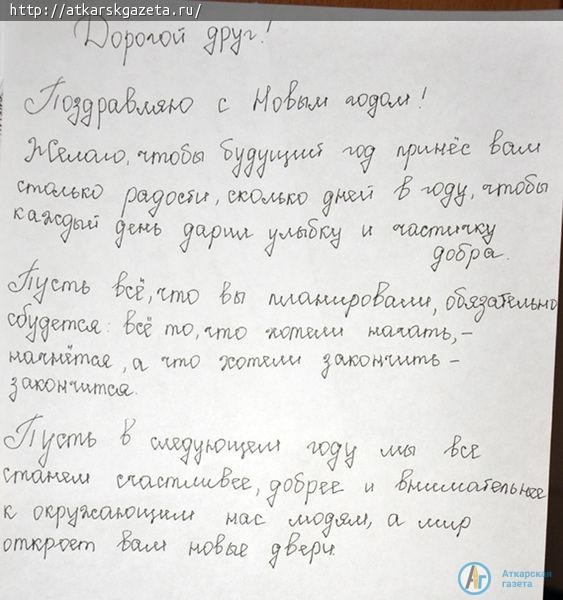 http://atkarskgazeta.ru/
Дорогой друг!
Поздравляю с Новым годом!
Желаю, чтобы будущий год принёс вам
столько радости, сколько дней в году, чтобы
каждый день дарил улыбку и частичку
добра.
Пусть всё, что вы планировали, обязательно
сбудется: всё то, что хотели начать, –
начнётся, а что хотели закончить –
закончится.
Пусть в следующем году мы все
станем счастливее, добрее и внимательнее
к окружающим нас людям, а мир
откроет вам новые двери.
Аткарская
газета